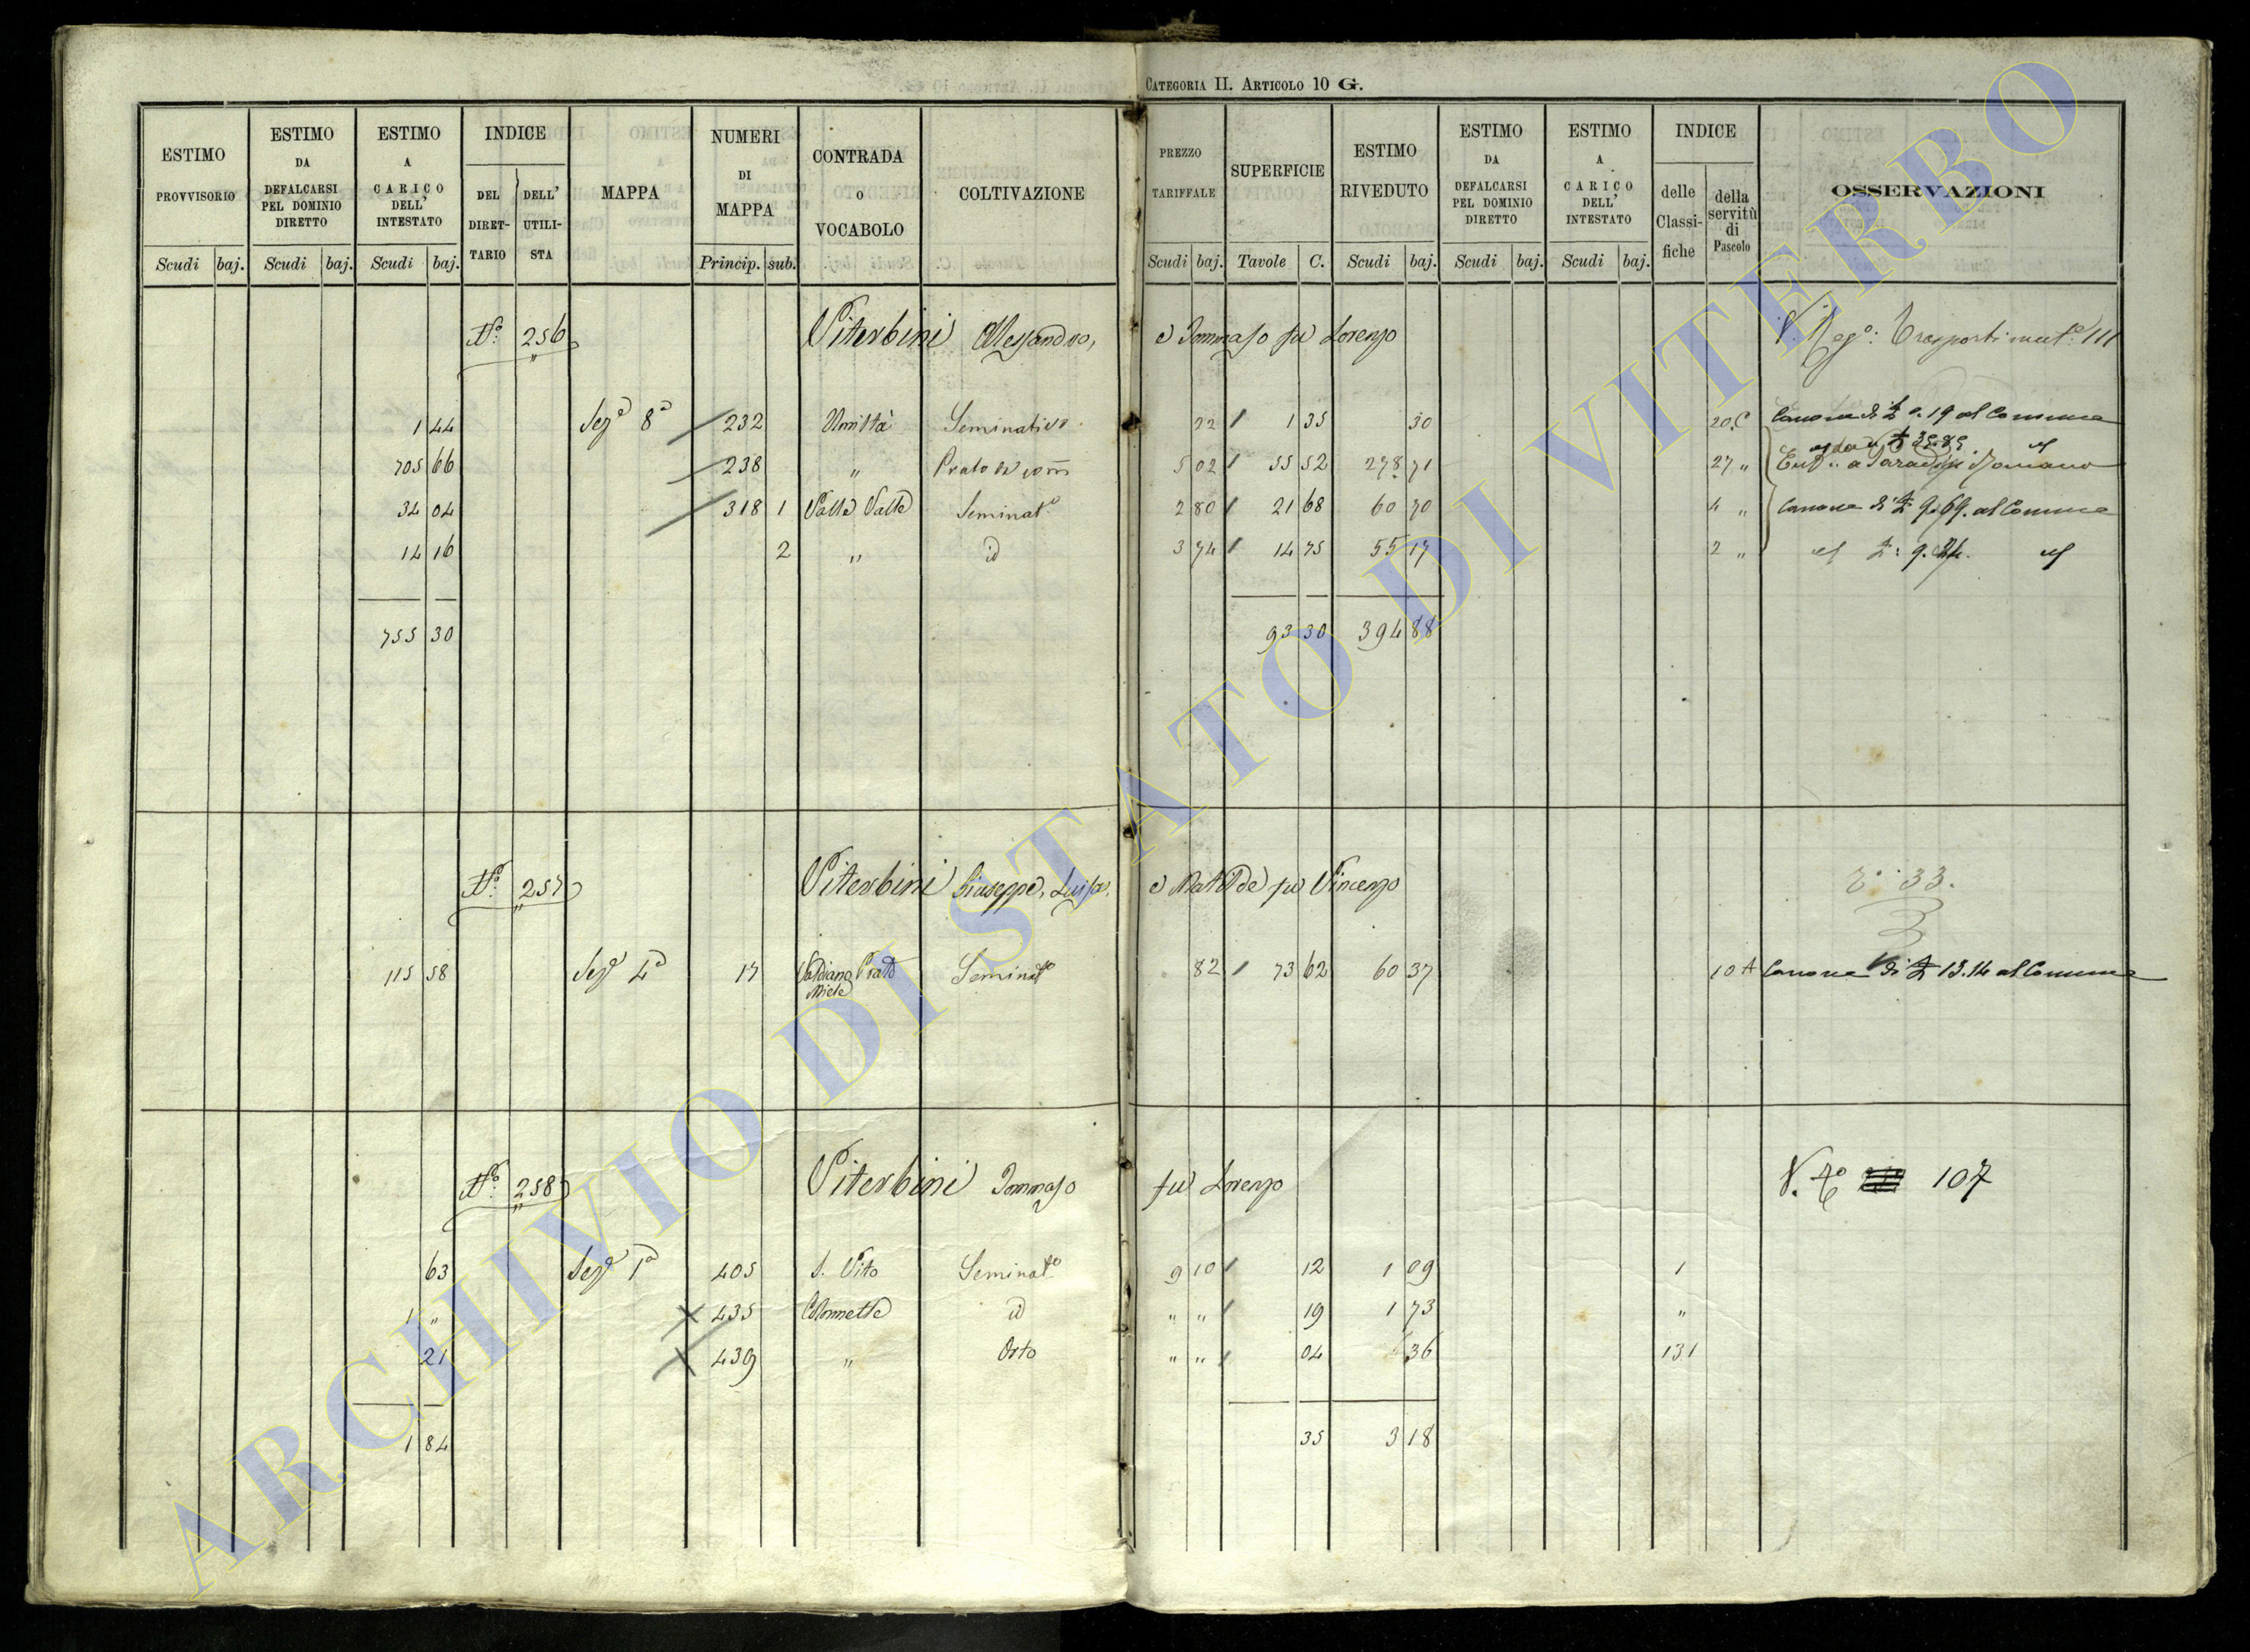 CATEGORIA II. ARTICOLO 10 G.
ESTIMO PROVVISORIO
ESTIMO DA DEFALCARSI PEL DOMINIO DIRETTO
ESTIMO A CARICO DELL' INTESTATO
INDICE
DEL DIRETTARIO
DELL' UTILISTA
MAPPA
NUMERI DI MAPPA
CONTRADA O VOCABOLO
COLTIVAZIONE
PREZZO TARIFFALE
SUPERFICIE
ESTIMO RIVEDUTO
ESTIMO DA DEFALCARSI PEL DOMINIO DIRETTO
ESTIMO A CARICO DELL' INTESTATO
INDICE
delle Classifiche
della servitù di Pascolo
OSSERVAZIONI
Scudi baj. Scudi baj. Scudi baj. Princip. sub. Scudi baj. Tavole C. Scudi baj. Scudi baj. Scudi baj.
No. 256 Viterbini Alessandro, e Tommaso fu Lorenzo V. Rego: Trasporti 111
1 44 Seza 8a 232 Seminativo 22 1 35 30 20 C Canone di 0.19 al Comune
705 66 238 " Prato 5 02 55 52 278 71 27 "
34 04 318 1 Valle Seminato 2 80 21 68 60 70 4 " Canone di 9.69. al Comune
14 16 2 " id 3 74 14 75 55 17 2 " 9.24.
755 30 93 30 394 88
No. 257 Viterbini Giuseppe, Luisa, e Matilde fu Vincenzo 33.
115 58 Seza 4a 17 Prato Seminato 82 73 62 60 37 10 A Canone di 13.14 al Comune
No. 258 Viterbini Tommaso fu Lorenzo V. To 107
63 Seza 1a 405 S. Vito Seminato 9 10 12 1 09 1
1 " 435 Colonnette id " " 19 1 73 "
21 439 " Orto " " 04 36 131
1 84 35 3 18
ARCHIVIO DI STATO DI VITERBO